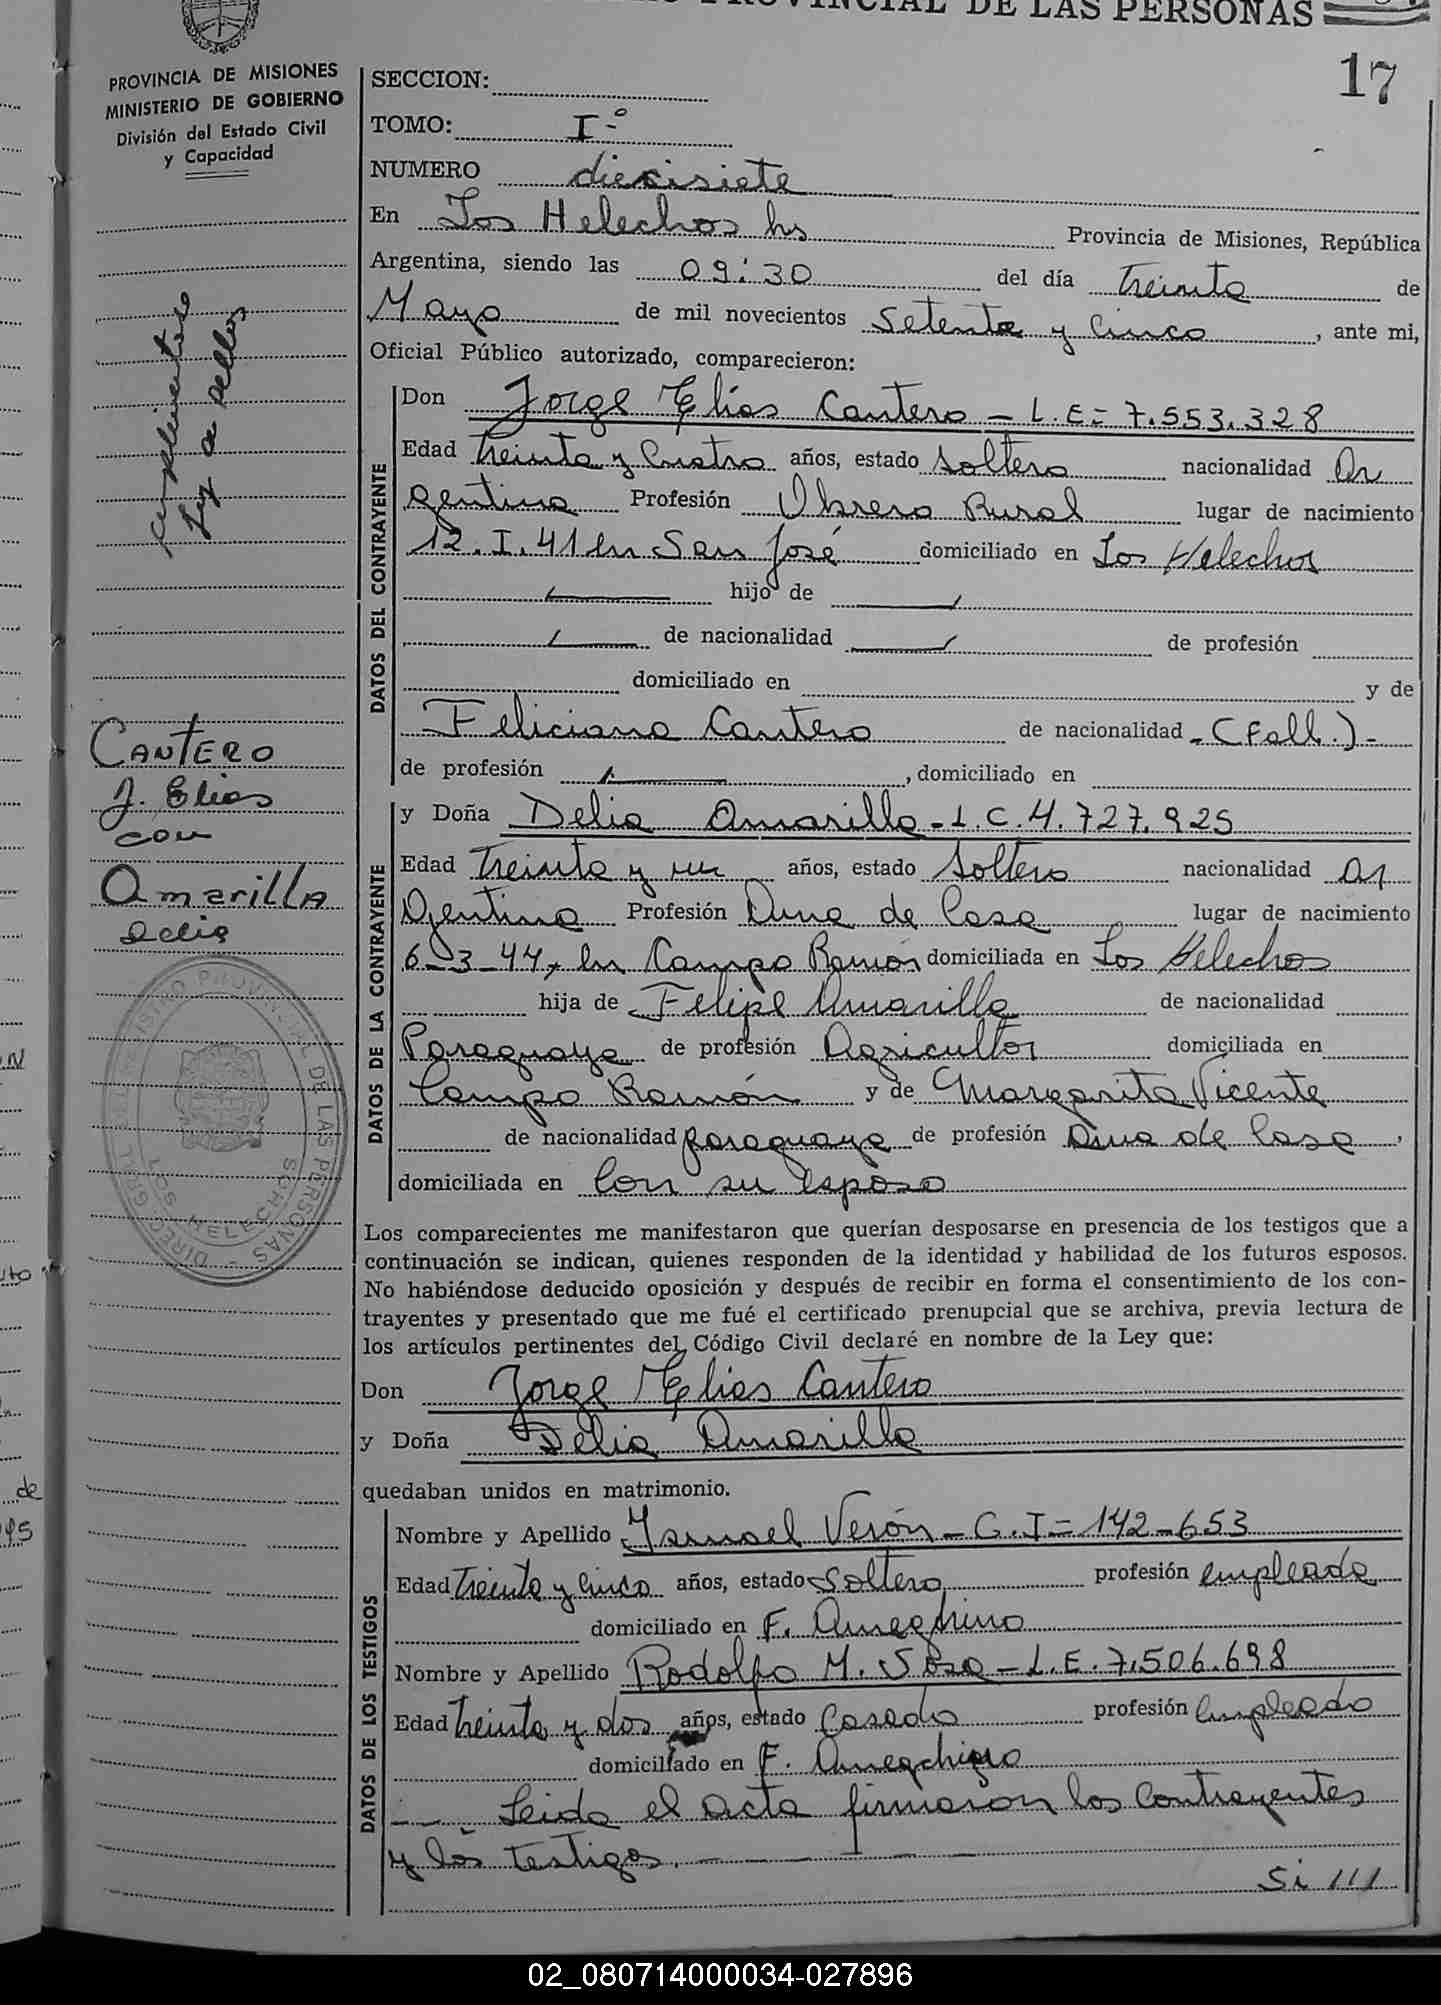 PROVINCIAL DE LAS PERSONAS
17
PROVINCIA DE MISIONES
MINISTERIO DE GOBIERNO
División del Estado Civil
y Capacidad
SECCION:
TOMO: Iº
NUMERO diecisiete
En Los Helechos hs Provincia de Misiones, República
Argentina, siendo las 09:30 del día treinta de
Mayo de mil novecientos Setenta y Cinco, ante mi,
Oficial Público autorizado, comparecieron:
DATOS DEL CONTRAYENTE
Don Jorge Elías Cantero - L.E= 7.553.328
Edad treinta y Cuatro años, estado soltero nacionalidad Ar
gentina Profesión Obrero Rural lugar de nacimiento
12.I.41 en San José domiciliado en Los Helechos
hijo de
de nacionalidad de profesión
domiciliado en y de
Feliciana Cantero de nacionalidad -(Fall.)-
de profesión , domiciliado en
DATOS DE LA CONTRAYENTE
y Doña Delia Amarilla - L.C. 4.727.925
Edad treinta y un años, estado soltera nacionalidad Ar
gentina Profesión Ama de Casa lugar de nacimiento
6-3-44, en Campo Ramón domiciliada en Los Helechos
hija de Felipe Amarilla de nacionalidad
Paraguaya de profesión Agricultor domiciliada en
Campo Ramón y de Margarita Vicente
de nacionalidad paraguaya de profesión Ama de Casa,
domiciliada en Con su esposo
Los comparecientes me manifestaron que querían desposarse en presencia de los testigos que a
continuación se indican, quienes responden de la identidad y habilidad de los futuros esposos.
No habiéndose deducido oposición y después de recibir en forma el consentimiento de los con-
trayentes y presentado que me fué el certificado prenupcial que se archiva, previa lectura de
los artículos pertinentes del Código Civil declaré en nombre de la Ley que:
Don Jorge Elias Cantero
y Doña Delia Amarilla
quedaban unidos en matrimonio.
DATOS DE LOS TESTIGOS
Nombre y Apellido Ismael Verón - C.I= 142-653
Edad treinta y cinco años, estado Soltero profesión empleado
domiciliado en F. Ameghino
Nombre y Apellido Rodolfo M. Sosa - L.E. 7.506.698
Edad treinta y dos años, estado Casado profesión Empleado
domiciliado en F. Ameghino
Leida el acta firmaron los Contrayentes
y los testigos.
Si ///
ley de sellos
CANTERO
J. Elias
con
AmarillA
Delia
DIREC. GRAL. DEL REGISTRO PROVINCIAL DE LAS PERSONAS
LOS HELECHOS
de
02_080714000034-027896